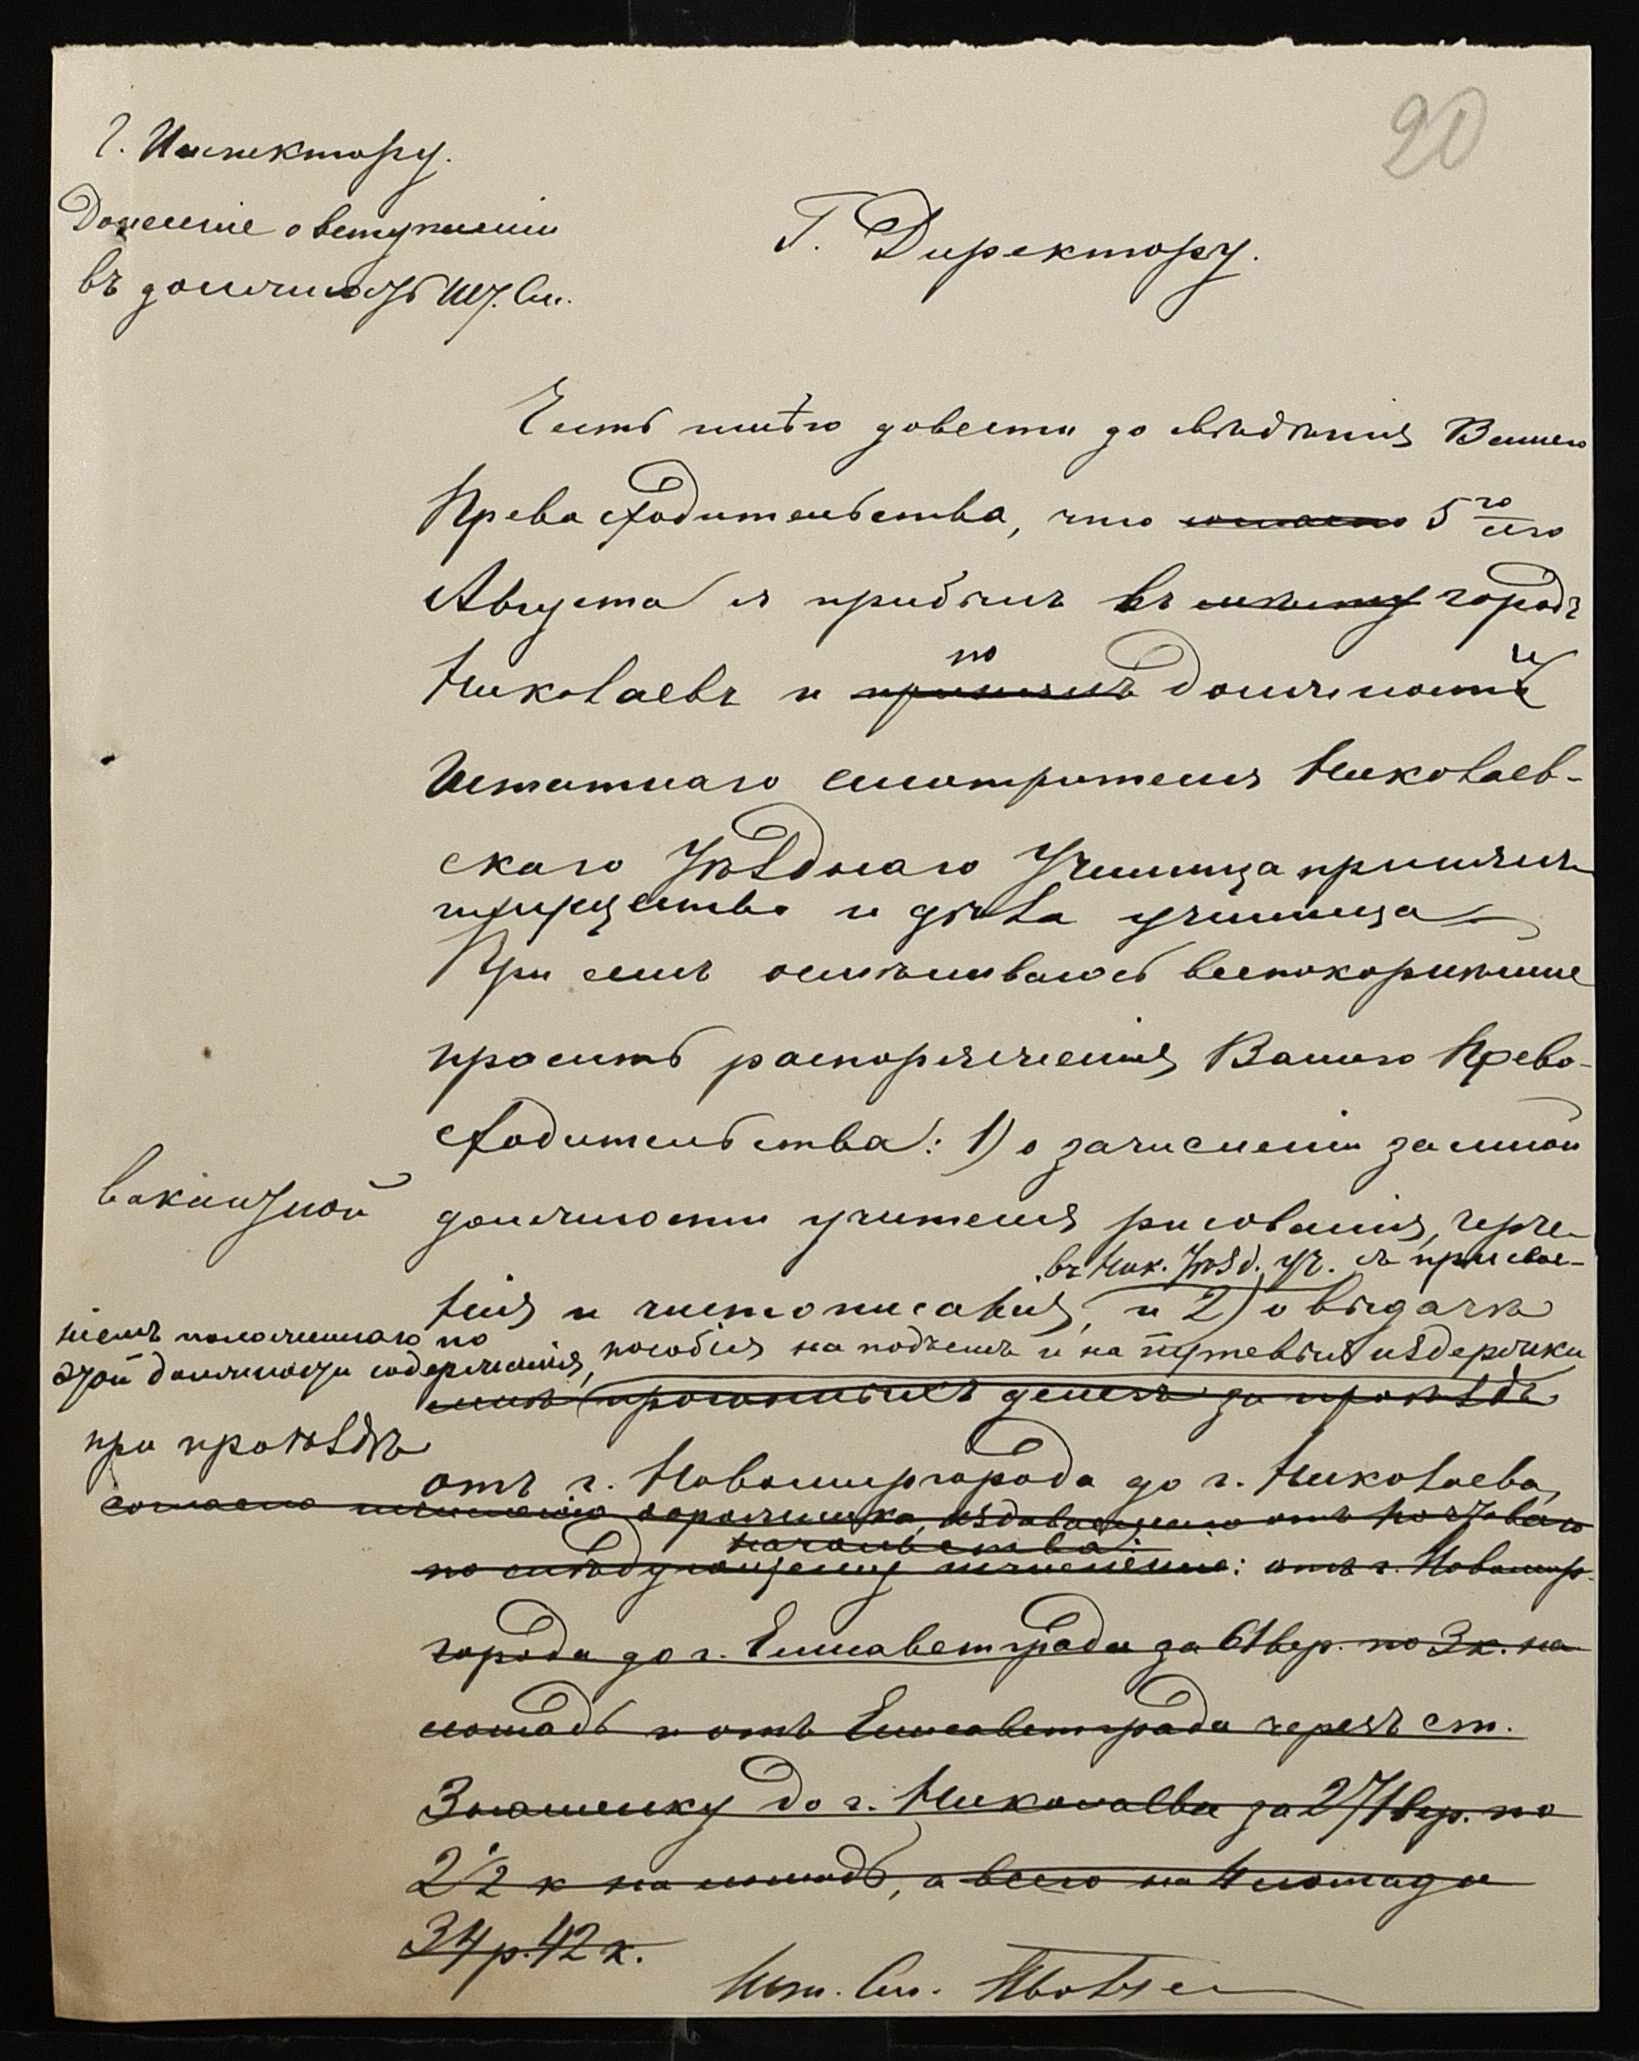 20
Г. Инспектору.
Донесеніе о вступленіи
въ должность Шт. См.
Г. Директору.
Честь имѣю довести до свѣдѣнія Вашего
Превосходительства, что согласно 5го сего
Августа я прибылъ въ городъ
Николаевъ и принялъ по должности
Штатнаго смотрителя Николаев-
скаго Уѣзднаго Училища принялъ
имущество и дѣла училища
При семъ осмѣливаюсь всепокорнѣйше
просить распоряженія Вашего Прево-
сходительства: 1) о зачисленіи за мной
вакантной
должности учителя рисованія, черче-
нія и чистописанія, въ Ник. Уѣзд. уч. съ присвое-
ніемъ положеннаго по
этой должности содержанія,
и 2) о выдачѣ
пособія на подъемъ и на путевыя издержки
мнѣ прогонныхъ денегъ за проѣздъ
при проѣздѣ
отъ г. Новомиргорода до г. Николаева,
согласно
начальства:
по слѣдующему исчисленію: отъ г. Новомир-
города до г. Елисаветграда за 61 вер. по 3 к. на
лошадь и отъ Елисаветграда черезъ ст.
Знаменку до г. Николаева за 271 вер. по
2 1/2 к на лошадь, а всего на 4 лошади
34 р. 42 к.
Шт. См.